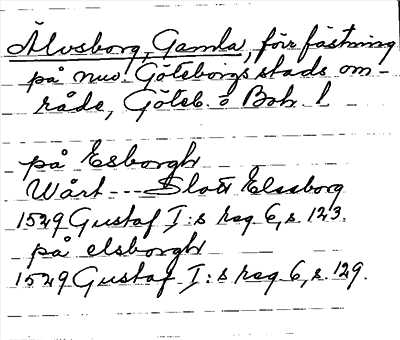 Älvsborg, Gamla, förr fästning
på nuv. Göteborgs stads om-
råde, Göteb. o Boh. l
på Esborgh
Wårt --- Slott Elssborg
1529 Gustaf I:s reg. 6, s. 123.
på elsborgh
1529 Gustaf I:s reg. 6, s. 129.